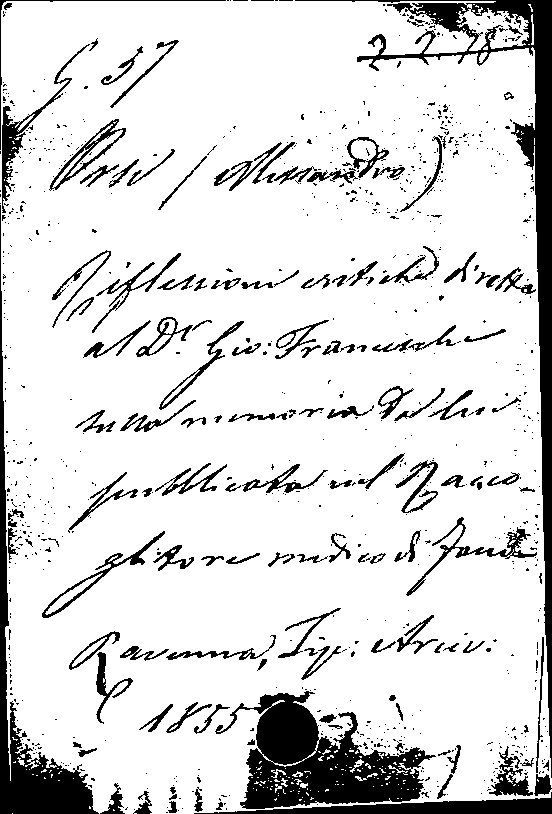 G. 57 2.2.18
Orsi (Alessandro)
Riflessioni critiche dirette
al Dr. Gio: Franceschi
sulla memoria da lui
pubblicata nel Racco-
glitore medico di Fano
Ravenna, Tip: Arciv:
1855